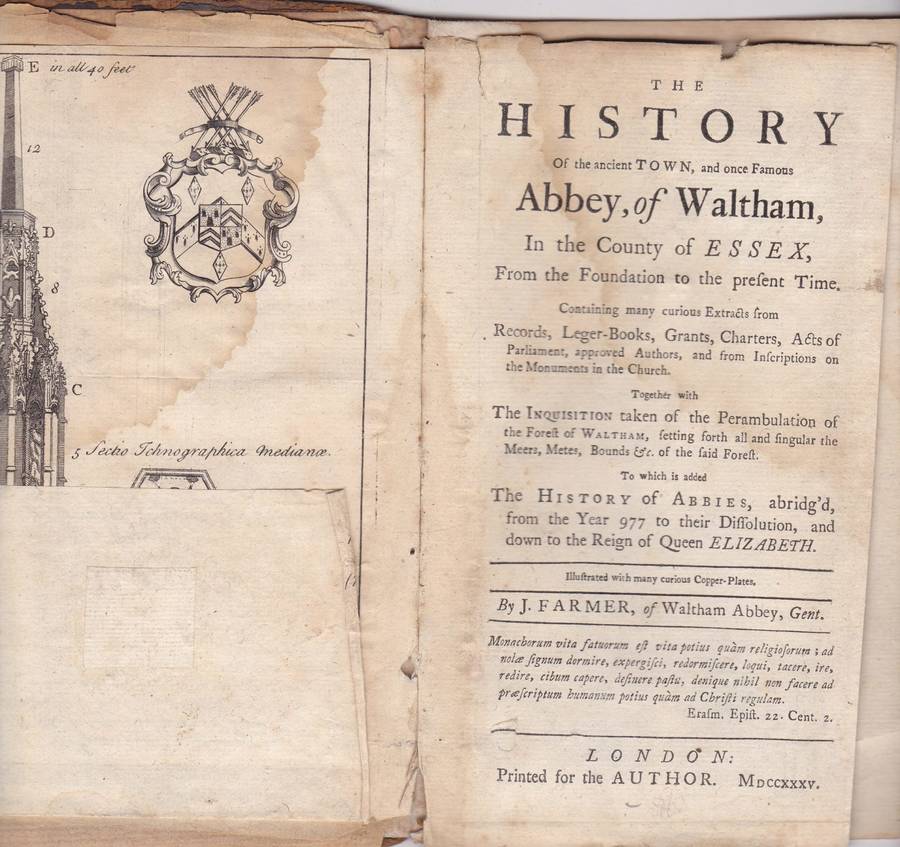 E in all 40 feet
12
D
8
C
5 Sectio Ichnographica medianæ.
THE
HISTORY
Of the ancient TOWN, and once Famous
Abbey, of Waltham,
In the County of ESSEX,
From the Foundation to the preſent Time.
Containing many curious Extracts from
Records, Leger-Books, Grants, Charters, Acts of
Parliament, approved Authors, and from Inſcriptions on
the Monuments in the Church.
Together with
The INQUISITION taken of the Perambulation of
the Foreſt of WALTHAM, ſetting forth all and ſingular the
Meers, Metes, Bounds &c. of the ſaid Foreſt.
To which is added
The HISTORY of ABBIES, abridg'd,
from the Year 977 to their Diſſolution, and
down to the Reign of Queen ELIZABETH.
Illuſtrated with many curious Copper-Plates.
By J. FARMER, of Waltham Abbey, Gent.
Monachorum vita fatuorum eſt vita potius quàm religioſorum; ad
nolæ ſignum dormire, expergiſci, redormiſcere, loqui, tacere, ire,
redire, cibum capere, deſinere paſtu, denique nihil non facere ad
præſcriptum humanum potius quàm ad Chriſti regulam.
Eraſm. Epiſt. 22. Cent. 2.
LONDON:
Printed for the AUTHOR. MDCCXXXV.